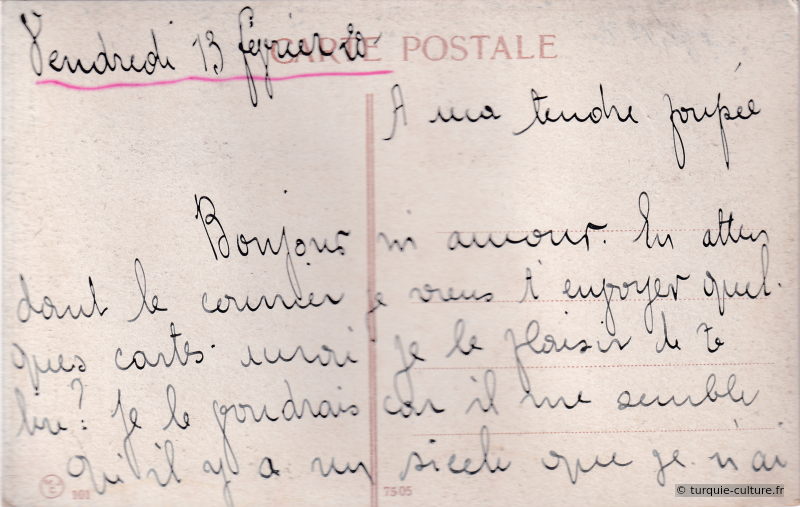 Vendredi 13 février 20
CARTE POSTALE
A ma tendre poupée
Bonjour mi amour. En atten
dant le courrier je viens t'envoyer quel-
ques cartes. aurai je le plaisir de te
lire? Je le voudrais car il me semble
qu'il y a un siecle que je n'ai
101
7505
© turquie-culture.fr